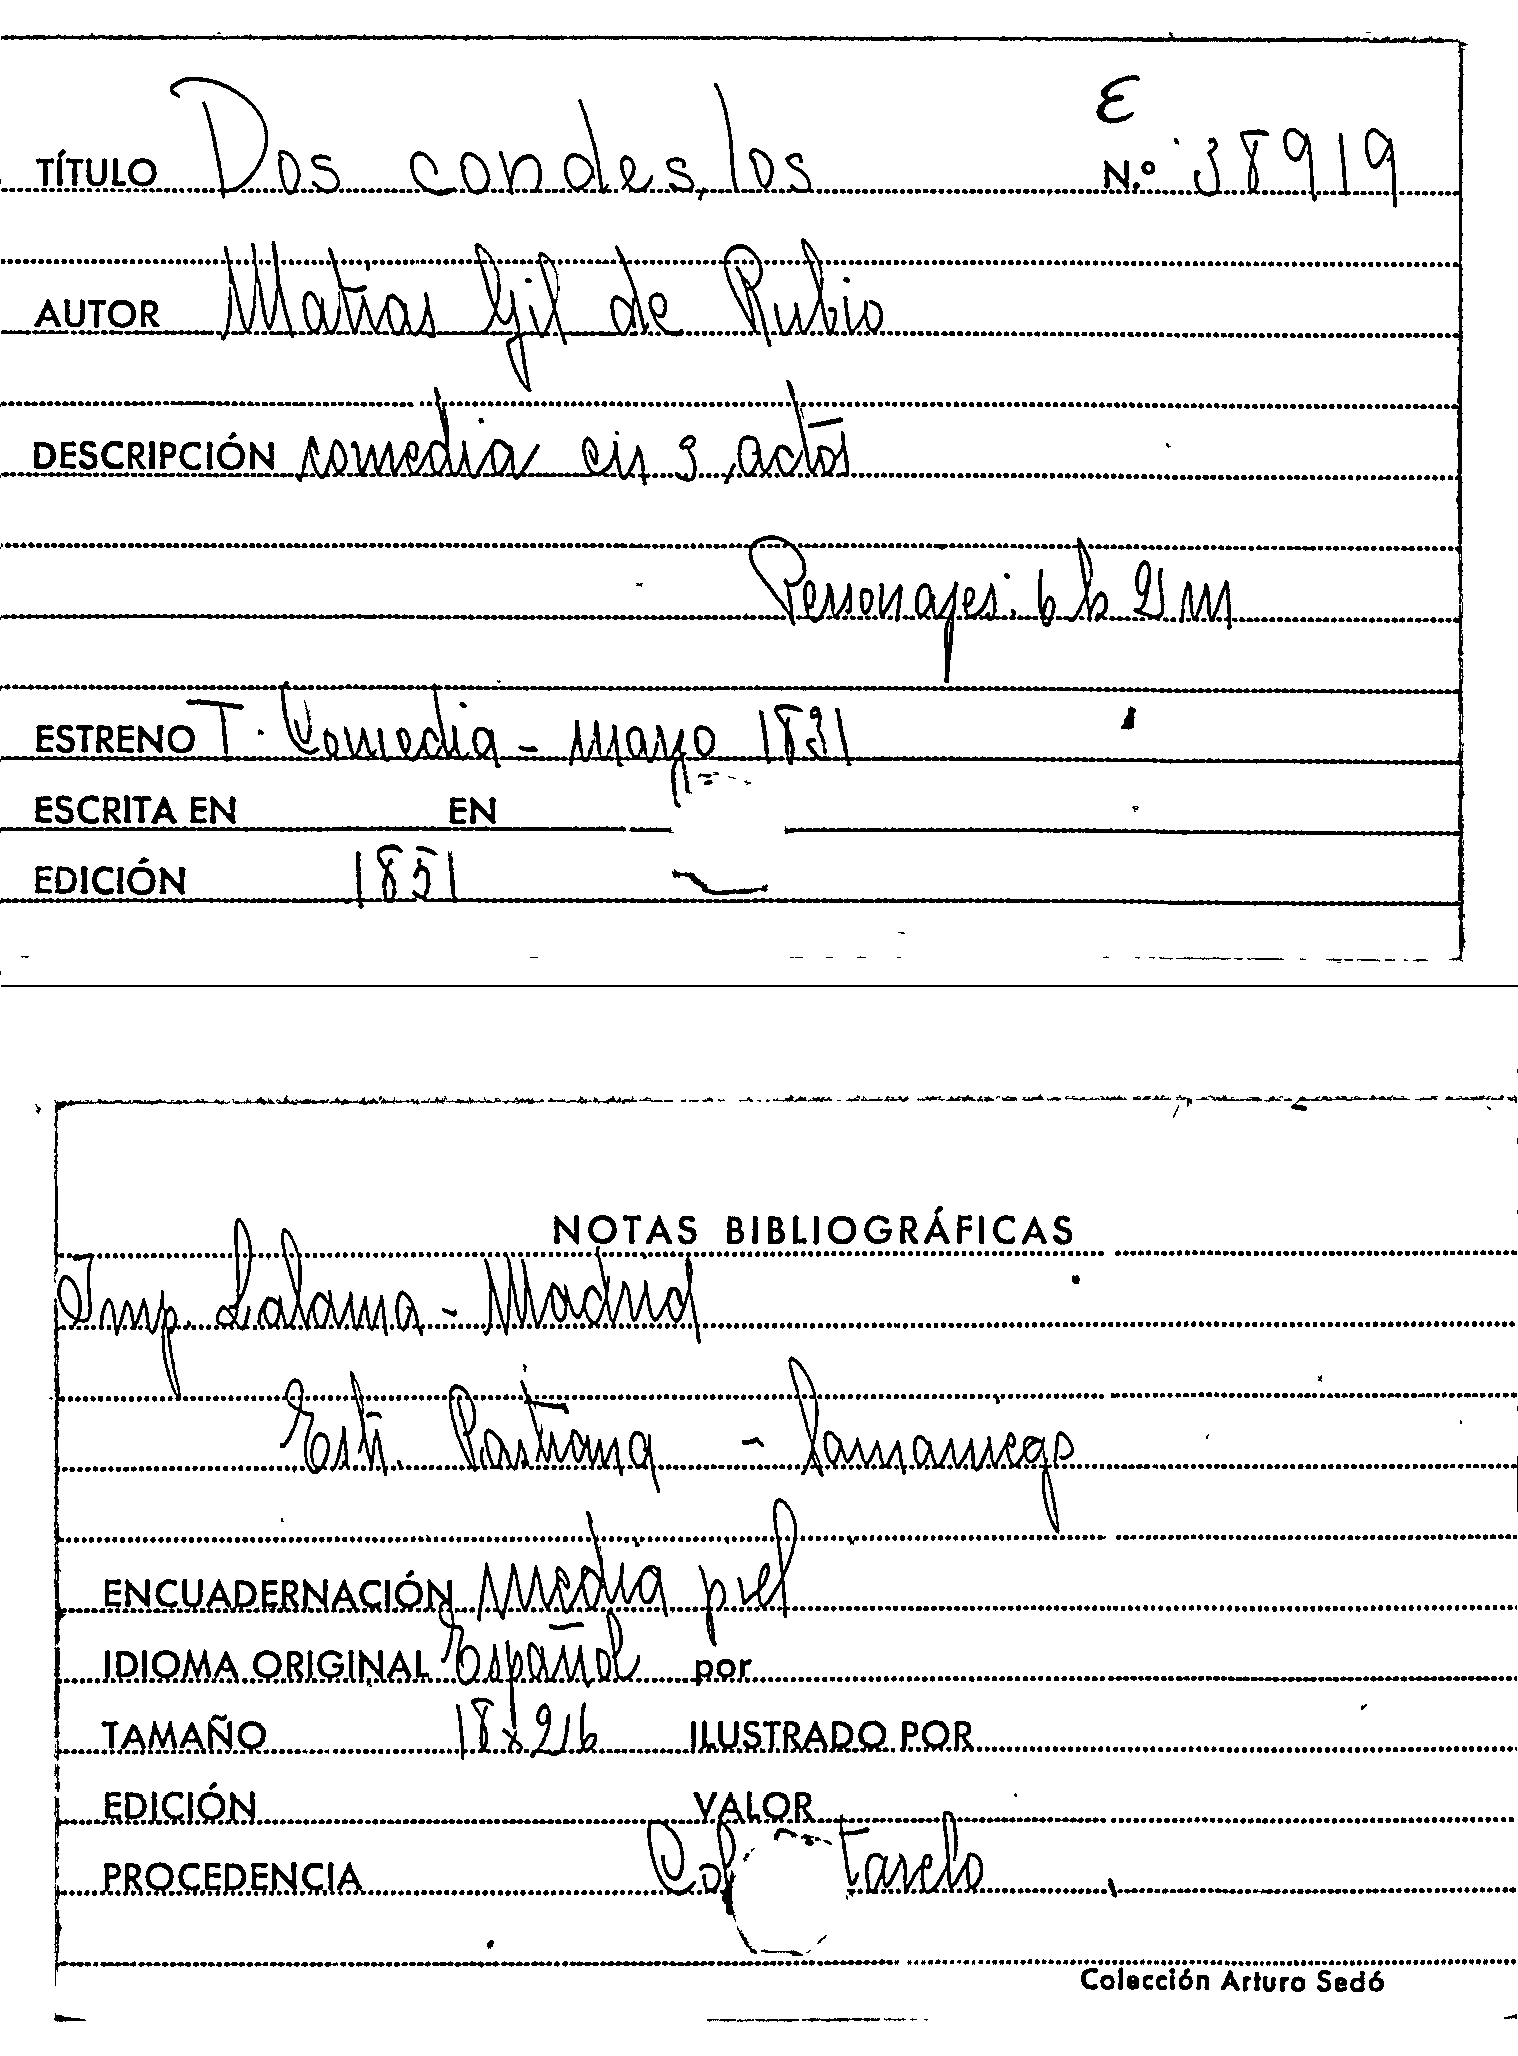 E
TÍTULO Dos condes, los N.º 38919
AUTOR Matías Gil de Rubio
DESCRIPCIÓN comedia en 3 actos
Personajes: 6 h 2 m
ESTRENO T. Comedia - mayo 1831
ESCRITA EN EN
EDICIÓN 1851
NOTAS BIBLIOGRÁFICAS
Imp. Lalama - Madrid
Estr. Pastrana - Samaniego
ENCUADERNACIÓN media piel
IDIOMA ORIGINAL Español por
TAMAÑO 18 x 26 ILUSTRADO POR
EDICIÓN VALOR
PROCEDENCIA
Colección Arturo Sedó